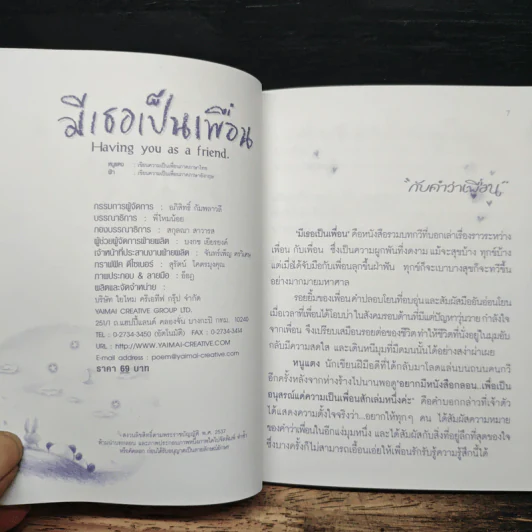 มีเธอเป็นเพื่อน
Having you as a friend.
หนูแดง : เขียนความเป็นเพื่อนภาคภาษาไทย
: เขียนความเป็นเพื่อนภาคภาษาอังกฤษ
กรรมการผู้จัดการ :
บรรณาธิการ : พี่ใหม่น้อย
กองบรรณาธิการ : สกุณนา ดาวารล
ผู้ช่วยผู้จัดการฝ่ายผลิต :
เจ้าหน้าที่ประสานงานฝ่ายผลิต : จันทร์เพ็ญ
กราฟฟิค ดีไซเนอร์ : สุรัตน์ โคตรมงคุณ
ภาพประกอบ & ลายมือ :
ผลิตและจัดจำหน่าย :
บริษัท ใยไหม ครีเอทีฟ กรุ๊ป จำกัด
YAIMAI CREATIVE GROUP LTD.
คลองจั่น บางกะปิ กทม. 10240
TEL : 0-2734-3450 (อัตโนมัติ) FAX : 0-2734-3414
URL : http://WWW.YAIMAI-CREATIVE.COM
E-mail address : poem@yaimai-creative.com
ราคา 69 บาท
สงวนลิขสิทธิ์ตามพระราชบัญญัติ พ.ศ. 2537
7
"กับคำว่าเพื่อน"
"มีเธอเป็นเพื่อน" คือหนังสือรวมบทกวีที่บอกเล่าเรื่องราวระหว่าง
เพื่อน กับเพื่อน ซึ่งเป็นความผูกพันที่งดงาม แม้จะสุขบ้าง ทุกข์บ้าง
แต่เมื่อได้จับมือกับเพื่อนลุกขึ้นฝ่าฟัน ทุกข์ก็จะเบาบางสุขก็จะทวีขึ้น
อย่างมากมายมหาศาล
รอยยิ้มของเพื่อน คำปลอบโยนที่อบอุ่นและสัมผัสมืออันอ่อนโยน
เมื่อเวลาที่เพื่อนได้โอบบ่า ในสังคมรอบด้านที่มีแต่ปัญหาวุ่นวาย กำลังใจ
จากเพื่อน จึงเปรียบเสมือนรอยต่อของชีวิต ทำให้ชีวิตที่นั่งอยู่ในมุมอับ
กลับมีความสดใส และเดินหนีมุมที่มืดมนนั้นได้อย่างสง่าผ่าเผย
หนูแดง นักเขียนฝีมือดีที่ได้กลับมาโลดแล่นบนถนนคนกวี
อีกครั้งหลังจากห่างร้างไปนานพอดู "อยากมีหนังสือกลอน...เพื่อเป็น
อนุสรณ์แด่ความเป็นเพื่อนสักเล่มหนึ่งค่ะ" คือคำบอกกล่าวที่เจ้าตัว
ได้แสดงความตั้งใจจริงว่า...อยากให้ทุกๆ คน ได้สัมผัสความหมาย
ของคำว่าเพื่อนในอีกแง่มุมหนึ่ง และได้สัมผัสกับสิ่งที่อยู่ลึกที่สุดของใจ
ซึ่งบางครั้งก็ไม่สามารถเอื้อนเอ่ยให้เพื่อนรักรับรู้ความรู้สึกนี้ได้